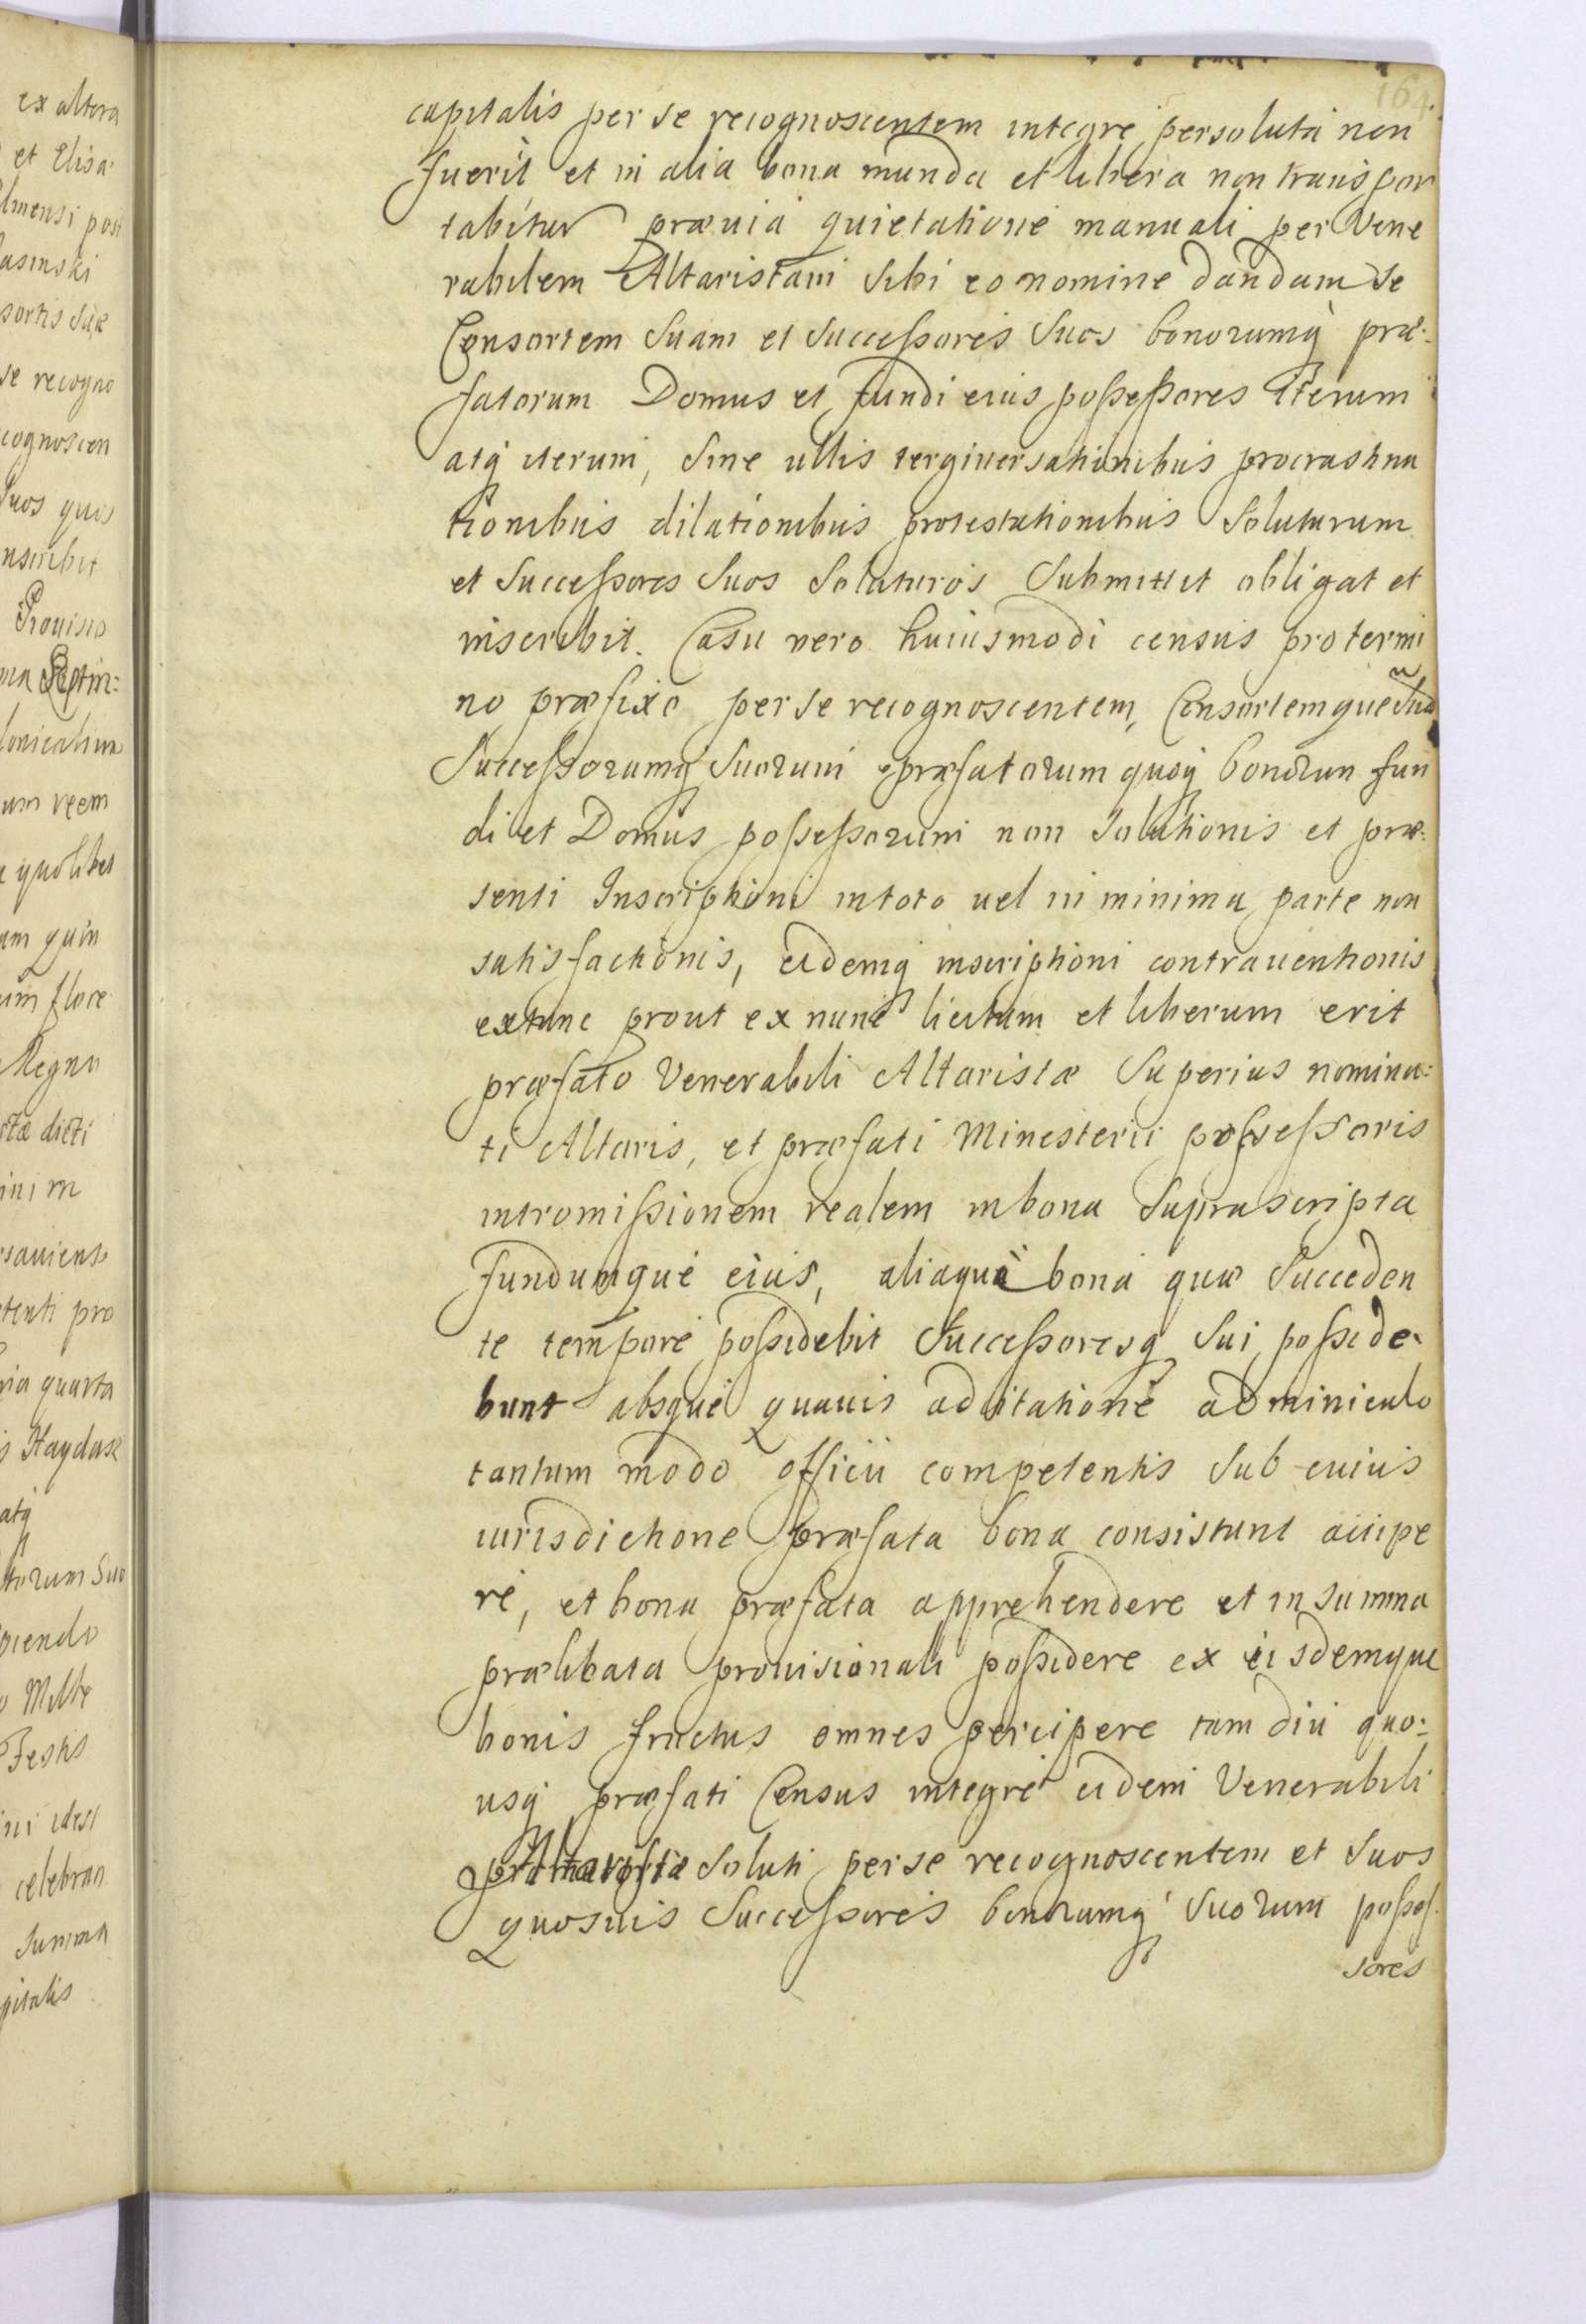 ex altera
et Elisa
lmensi post
asinski
sortis suæ
se recogno
cognoscen
suos quos
nscribit
Prouisio
na Septin:
lonicalium
um reem
quolibet
am quin
um flore
Regno
stæ dicti
inim
saviens
tenti pro
ria quarta
s Haydasz
atq
torum Suo
ciendo
Mille
Festis
ni idest
celebran
summa
pitalis
164.
capitalis per se recognoscentem integre persoluta non
fuerit et in alia bona munda et libera non transpor
tabitur præuia quietatione manuali per Vene
rabilem Altaristam sibi eo nomine dandam se
Consortem Suam et Successores Suos bonorumq præ-
fatorum Domus et fundi eius possessores iterum
atq iterum, Sine ullis tergiuersationibus procrastina
tionibus dilationibus protestationibus Soluturum
et Successores Suos Soluturos Submittit obligat et
inscribit. Casu vero huiusmodi census pro termi
no præfixo per se recognoscentem, Consortemque Suã
Successorumq Suorum præfatorum quoq bonorum fun
di et Domus possessorum non Solutionis et præ-
senti Inscriptioni intoto uel in minima parte non
satisfactionis, eidemq inscriptioni contrauentionis
extunc prout ex nunc licitum et liberum erit
præfato Venerabili Altaristæ Superius nomina:
ti Altaris, et præfati Ministerii possessoris
intromissionem realem in bona Suprascripta
fundumque eius, aliaque bona quæ Succeden
te tempore possidebit Successoresq Sui posside-
bunt absque quauis ad citatione adminiculo
tantum modo officii competentis Sub cuius
iurisdictione præfata bona consistunt accipe
re, et bona præfata apprehendere et in summa
prælibata prouisionali possidere ex eisdemque
bonis fructus omnes percipere tam diu quo:
usq præfati Census integre eidem Venerabili
Altaristæ Soluti per se recognoscentem et Suos
quosuis Successores bonorumq Suorum posses-
sores